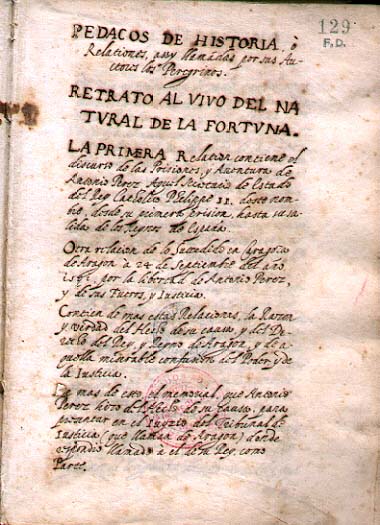 129
F.D.
PEDAÇOS DE HISTORIA, ò
Relationes, assy llamadas por sus Au
ctores los Peregrinos.
RETRATO AL VIVO DEL NA
TVRAL DE LA FORTVNA.
LA PRIMERA Relation contiene el
discurso de las Prisiones, y Auentura de
Antonio Perez Aquel Secretario de Estado
del Rey Catholico Philippe II. deste nom
bre, desde su primera prision, hasta su sa
lida de los Reynos de España.
Otra relacion de lo succedido en Caragoça
de Aragon a 24 de Septiembre del año
1591. por la libertad de Antonio Perez,
y de sus Fueros, y Iusticia.
Contienen de mas estas Relationes, la Razon
y verdad del Hecho de su causa, y del De
recho del Rey, y Reyno de Aragon, y de a
quella miserable confusion del Poder, y de
la Iusticia.
De mas de esto el memorial, que Antonio
Perez hizo del Hecho de su causa, para
presentar en el Iuyzio del Tribunal de
Iusticia (que llaman de Aragon) donde
respondio llamado a el de su Rey, como
Parte.